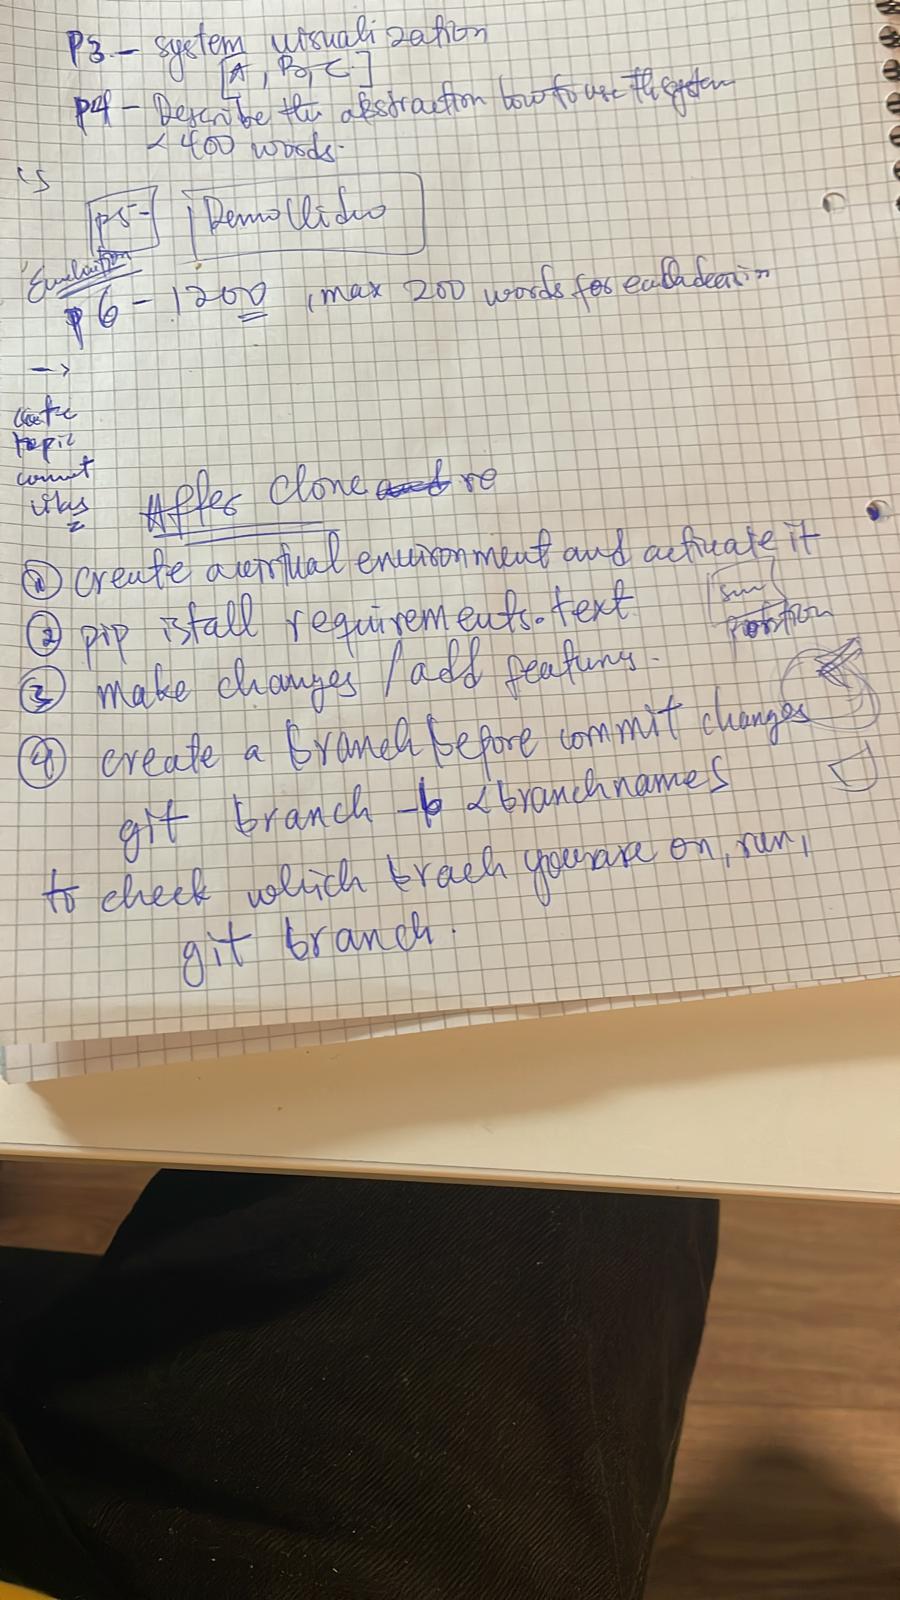 P3 - system visualization
[A, B, C]
P4 - Describe the abstraction how to use the system
< 400 words.
's
P5- Demo Video
Evaluation
P6 - 1200, max 200 words for each
->
topic
After Clone re
① create a virtual environment and activate it
② pip istall requirements.text
③ make changes / add features.
position
④ create a branch before commit changes
git branch -b <branchnames
to check which brach you are on, run,
git branch.